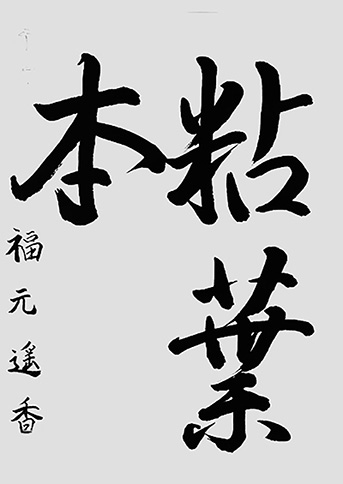 粘葉
本
福元遥香